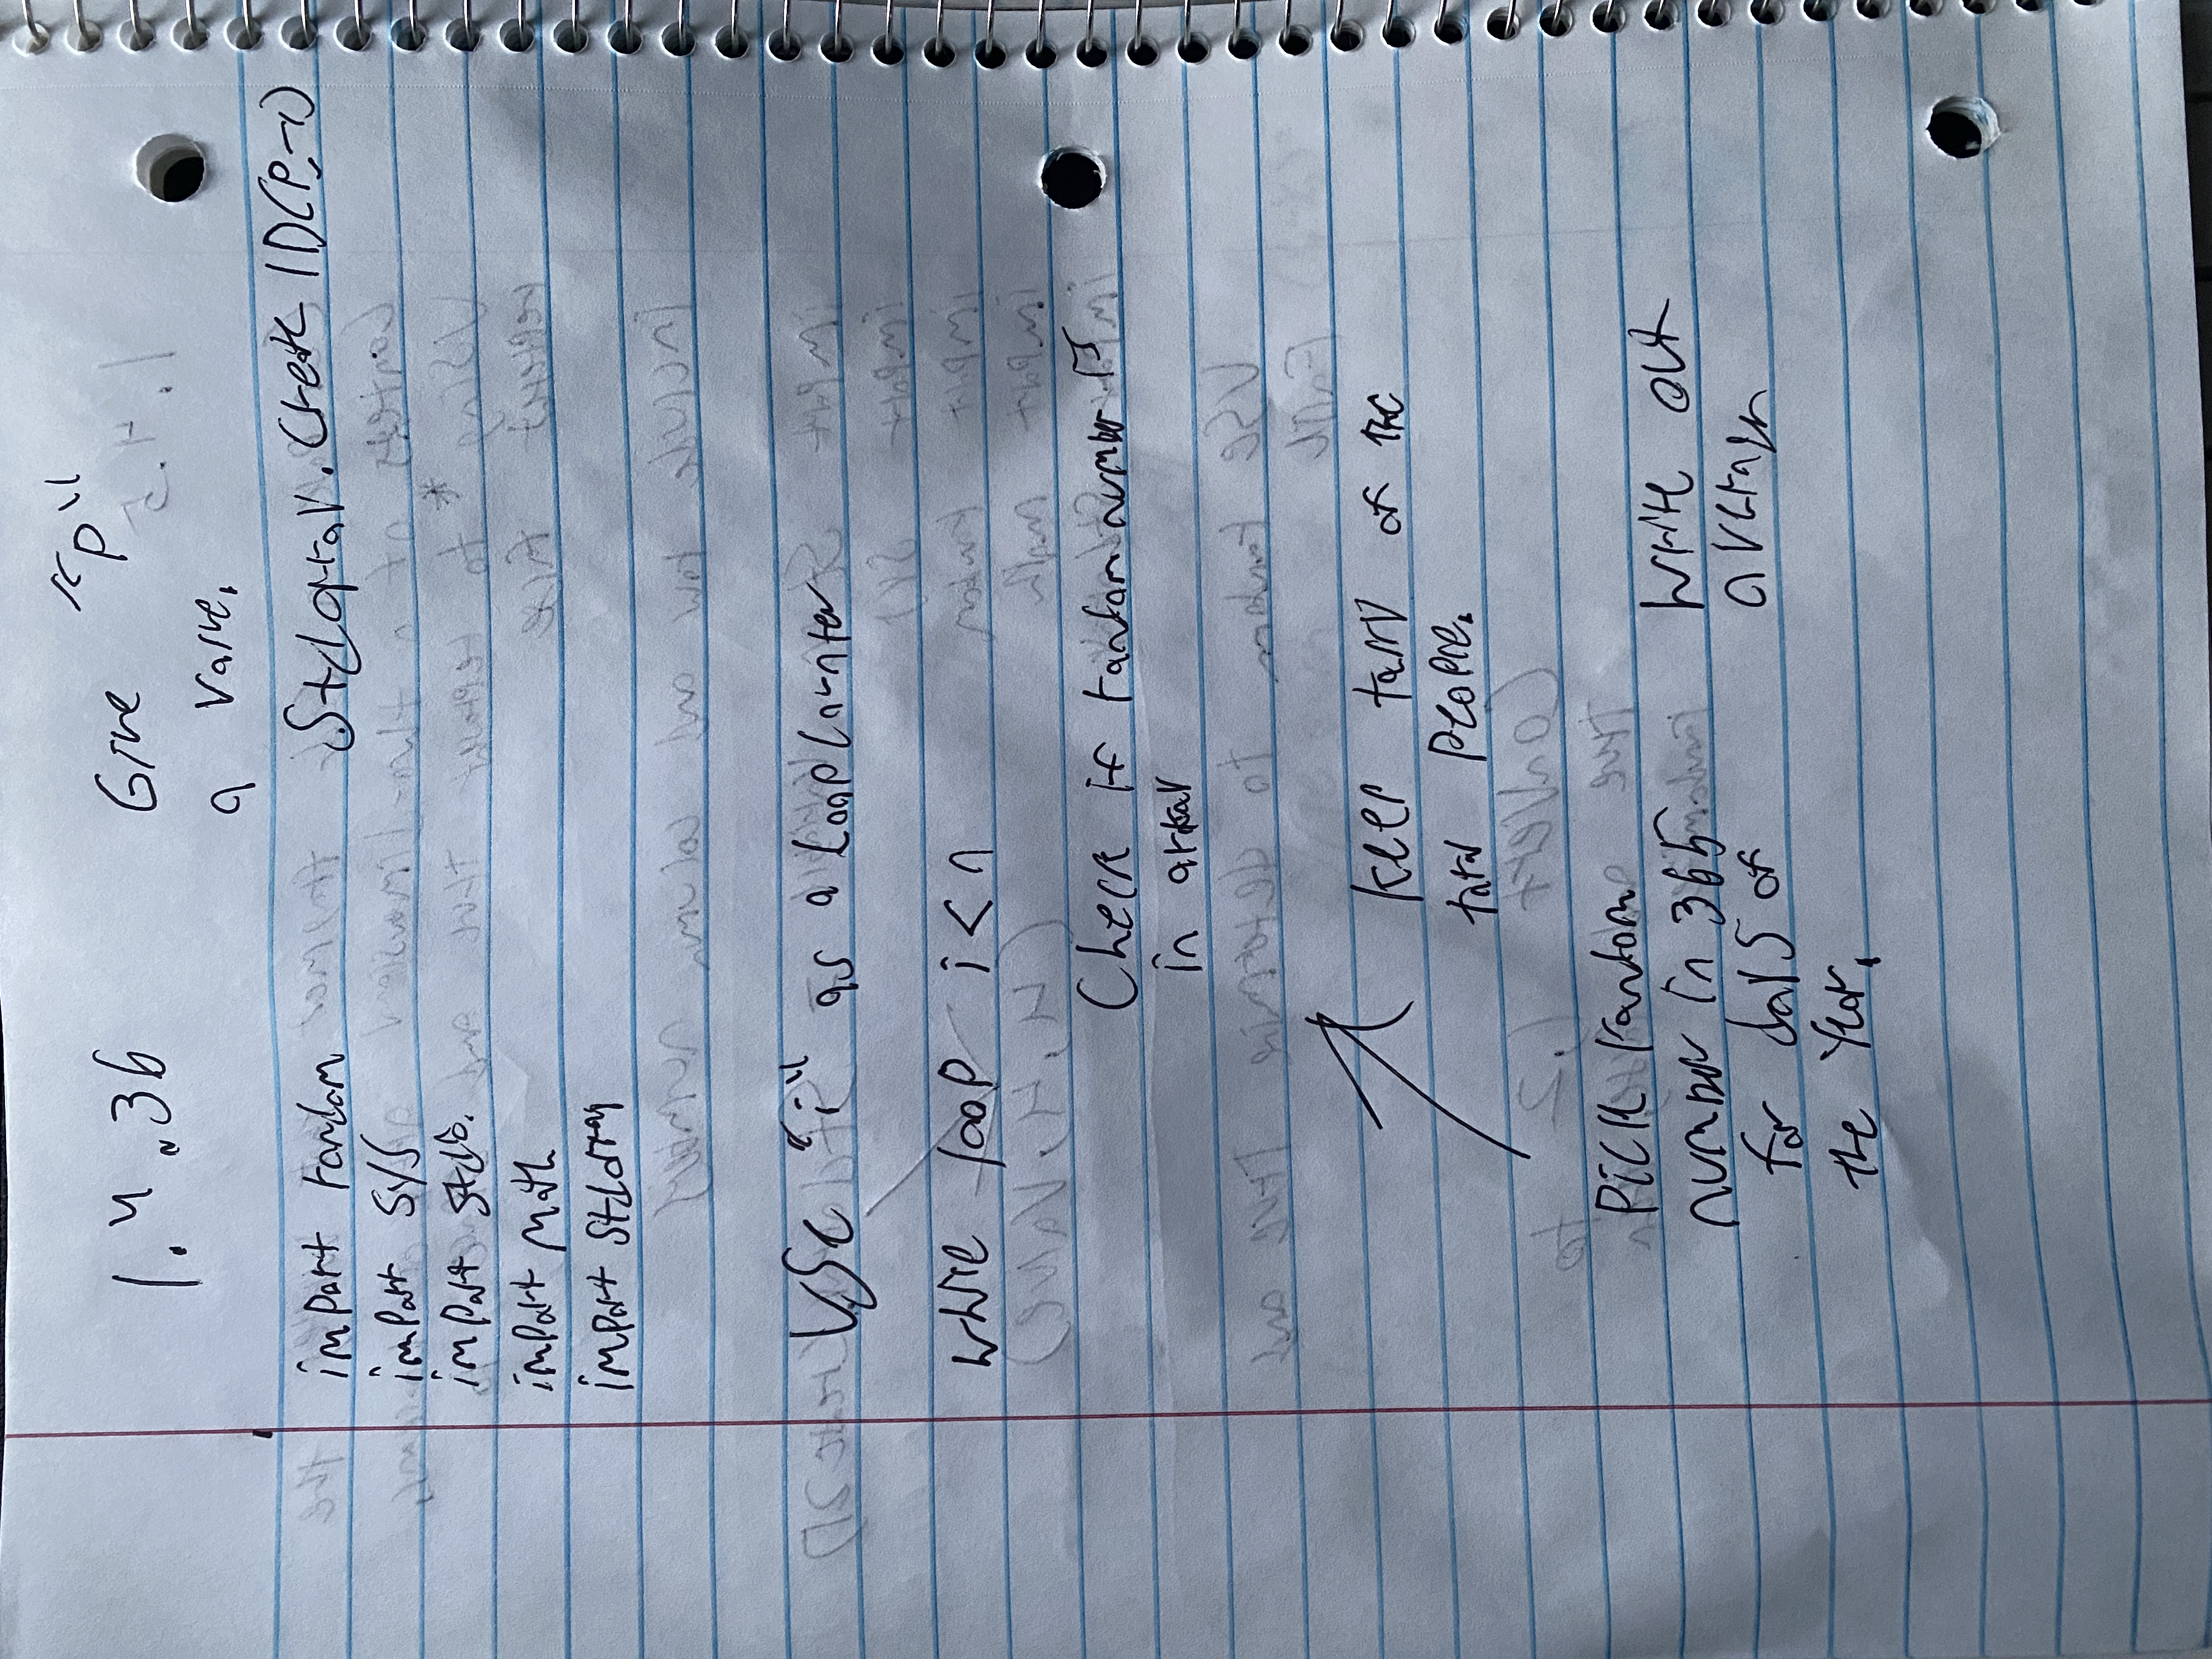 1.4.36
Give "P"
a value.
import random
stdarray.create 1D(P,-1)
import sys
import stdio.
import math
import stdarray
Use "i" as a loop counter
while loop i < n
Check if random number is
in array
Keep tally of the
total people.
Pick random
number in 365
for days of
the Year.
Write out
average